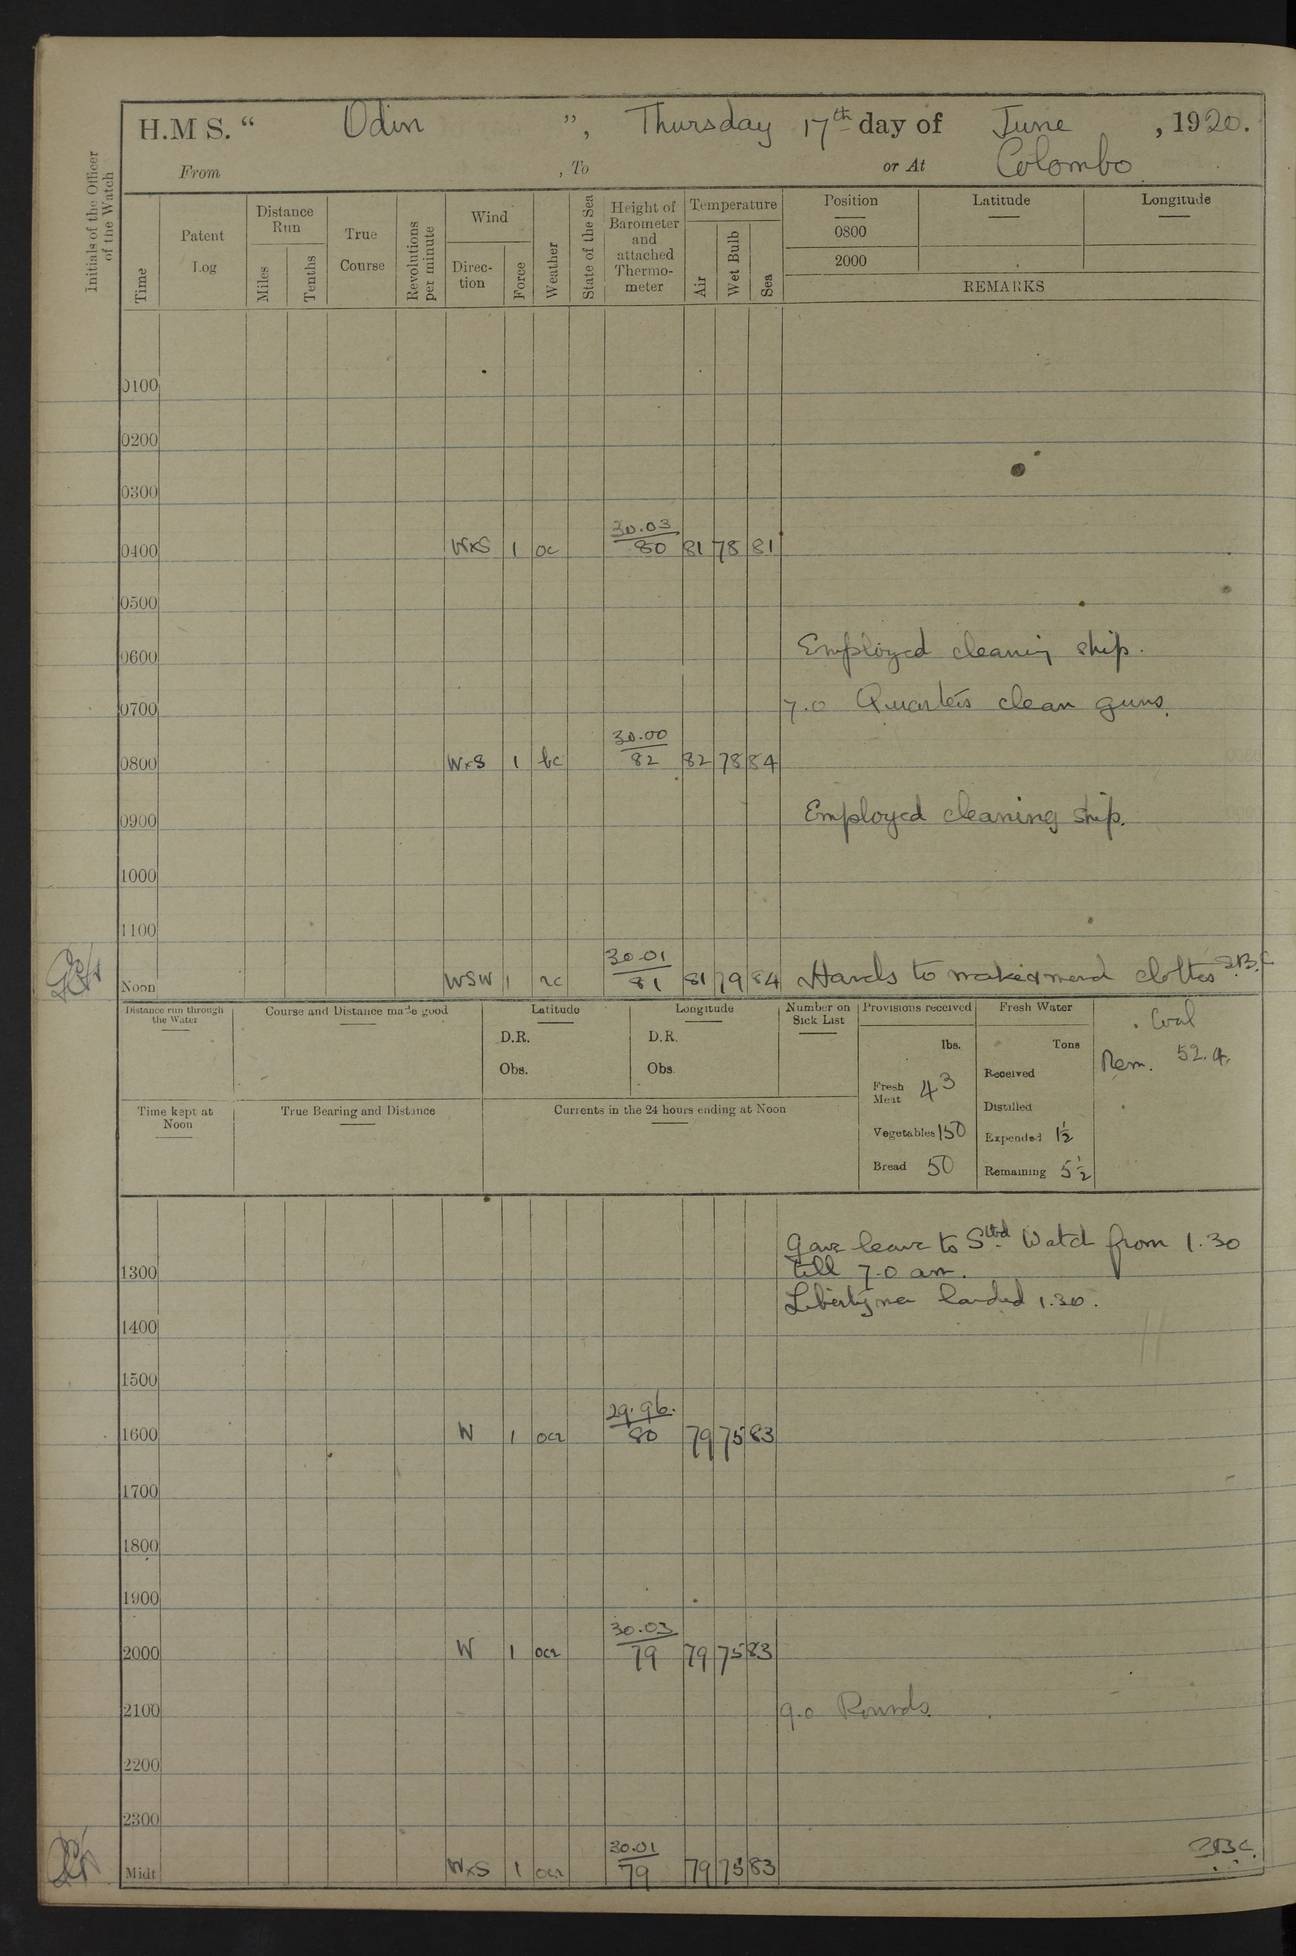 H.M S. “ Odin ”, Thursday 17th day of June , 1920.
From , To or At Colombo
Initials of the Officer of the Watch
Time
Patent Log
Distance Run
Miles
Tenths
True Course
Revolutions per minute
Wind
Direc-tion
Force
Weather
State of the Sea
Height of Barometer and attached Thermo-meter
Temperature
Air
Wet Bulb
Sea
Position Latitude Longitude
0800
2000
REMARKS
0100
0200
0300
0400 WxS 1 oc 30.03 / 80 81 78 81
0500
0600 Employed cleaning ship.
0700 7.0 Quarters clean guns.
0800 WxS 1 bc 30.00 / 82 82 78 84
0900 Employed cleaning ship.
1000
1100
Noon WSW 1 rc 30.01 / 81 81 79 84 Hands to make & mend clothes
Distance run through the Water
Course and Distance made good
Latitude
D.R.
Obs.
Longitude
D.R.
Obs.
Number on Sick List
Provisions received
lbs.
Fresh Meat 43
Vegetables 150
Bread 50
Fresh Water
Tons
Received
Distilled
Expended 1½
Remaining 5½
Coal
Rem. 52.4.
Time kept at Noon
True Bearing and Distance
Currents in the 24 hours ending at Noon
Gave leave to Stbd Watch from 1.30
1300 till 7.0 am.
Libertymen landed 1.30.
1400
1500
1600 W 1 ocr 29.96. / 80 79 75 83
1700
1800
1900
2000 W 1 ocr 30.03 / 79 79 75 83
2100 9.0 Rounds.
2200
2300
Midt WxS 1 ocr 30.01 / 79 79 75 83